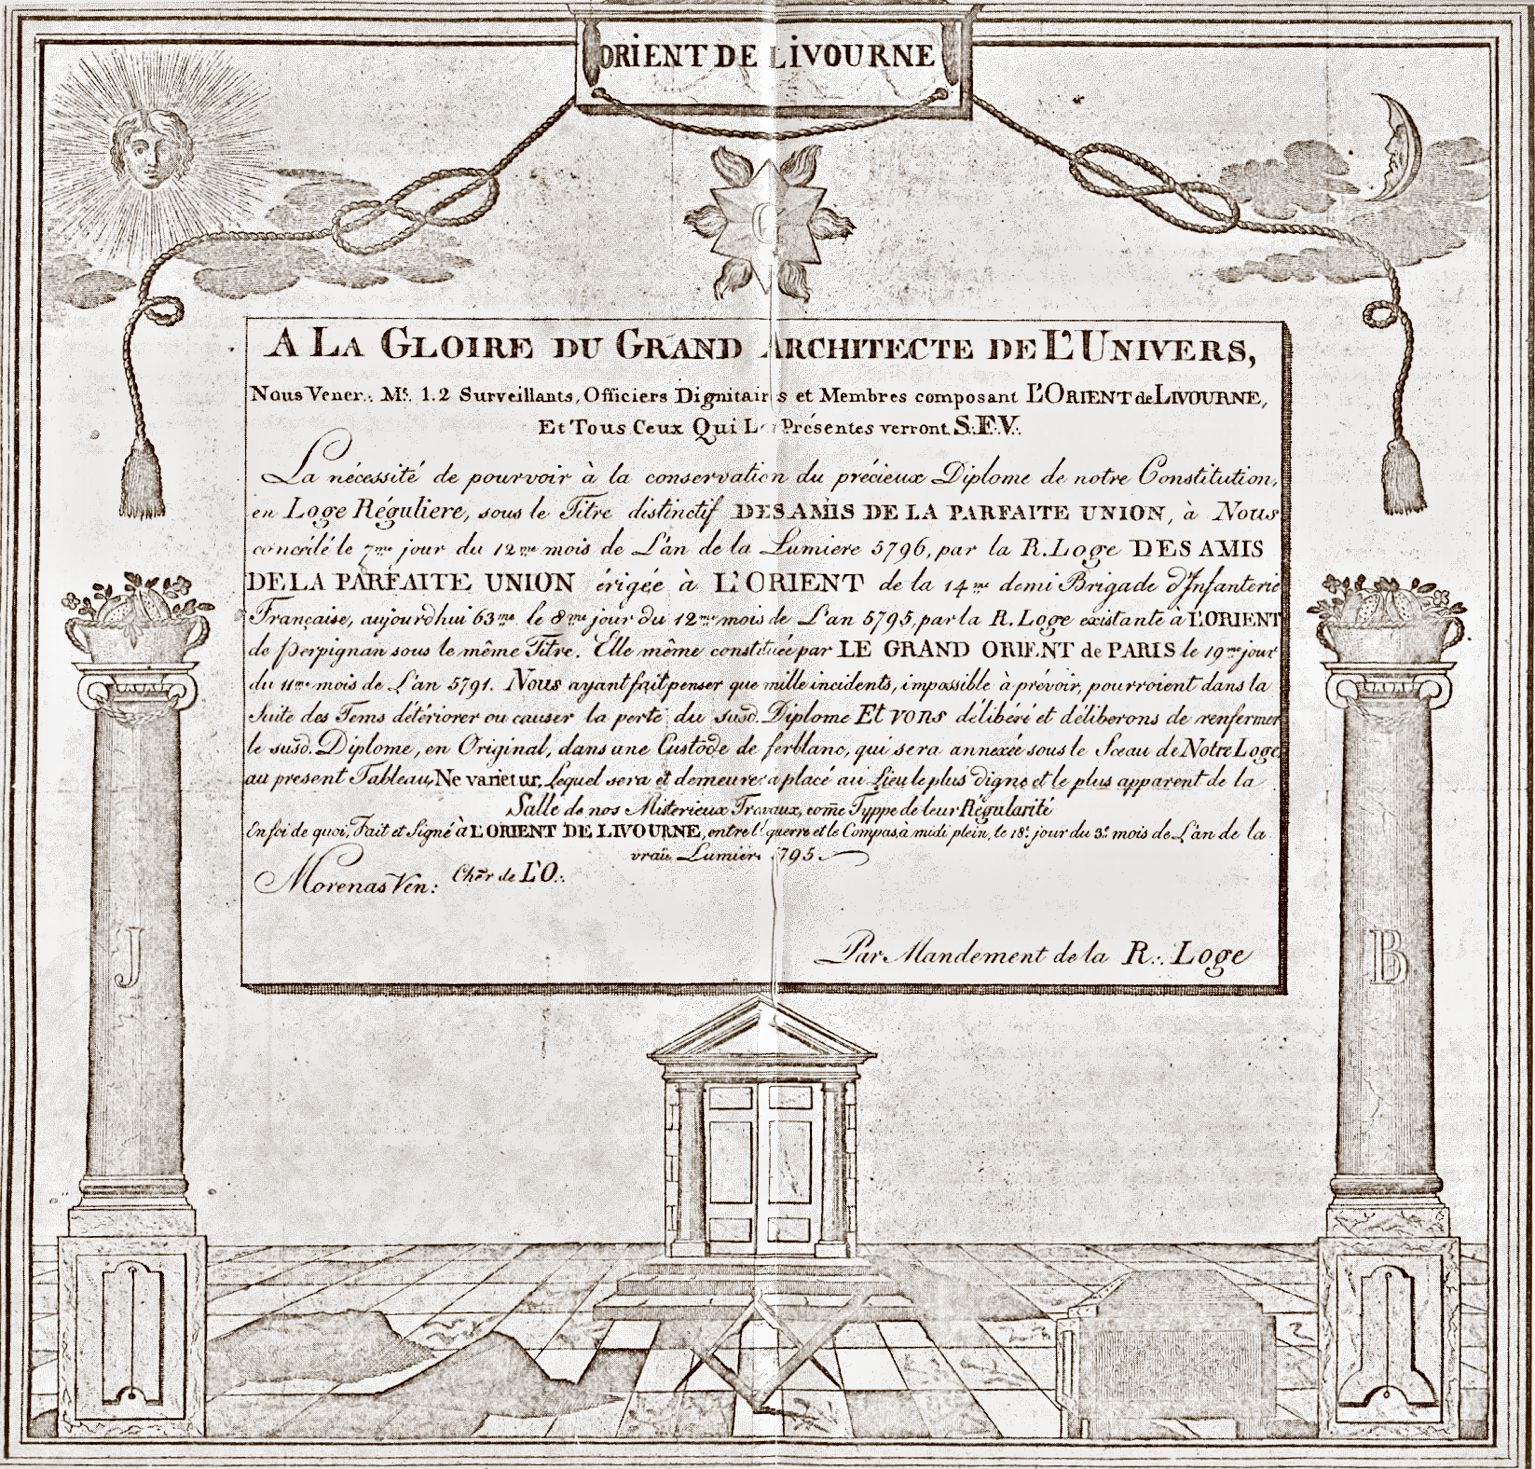 ORIENT DE LIVOURNE
G
A LA GLOIRE DU GRAND ARCHITECTE DE L'UNIVERS,
Nous Vener∴ Mˢ. 1.2 Surveillants, Officiers Dignitaires et Membres composant L'ORIENT de LIVOURNE,
Et Tous Ceux Qui Les Présentes verront S∴F∴V∴
La nécessité de pourvoir à la conservation du précieux Diplome de notre Constitution,
en Loge Réguliere, sous le Titre distinctif DES AMIS DE LA PARFAITE UNION, à Nous
concédé le 7ᵐᵉ jour du 12ᵐᵉ mois de L'an de la Lumiere 5796, par la R. Loge DES AMIS
DE LA PARFAITE UNION érigée à L'ORIENT de la 14ᵐᵉ demi Brigade d'Infanterie
Française, aujourdhui 63ᵐᵉ le 8ᵐᵉ jour du 12ᵐᵉ mois de L'an 5795, par la R. Loge existante à L'ORIENT
de Perpignan sous le même Titre. Elle même constituée par LE GRAND ORIENT de PARIS le 19ᵐᵉ jour
du 11ᵐᵉ mois de L'an 5791. Nous ayant fait penser que mille incidents, impossible à prévoir, pourroient dans la
Suite des Tems détériorer ou causer la perte du susd. Diplome Et vons délibéré et déliberons de renfermer
le susd. Diplome, en Original, dans une Custode de ferblanc, qui sera annexée sous le Sceau de Notre Loge,
au present Tableau, Ne varietur, Lequel sera et demeurera placé au Lieu le plus digne et le plus apparent de la
Salle de nos Misterieux Travaux, come Typpe de leur Régularité
En foi de quoi, Fait et Signé à L'ORIENT DE LIVOURNE, entre l'Equerre et le Compas, à midi plein, le 18ᵉ. jour du 3ᵉ. mois de L'an de la
vraie Lumiere 5795
Morenas Ven: Cher de L'O∴
Par Mandement de la R∴ Loge
J
B